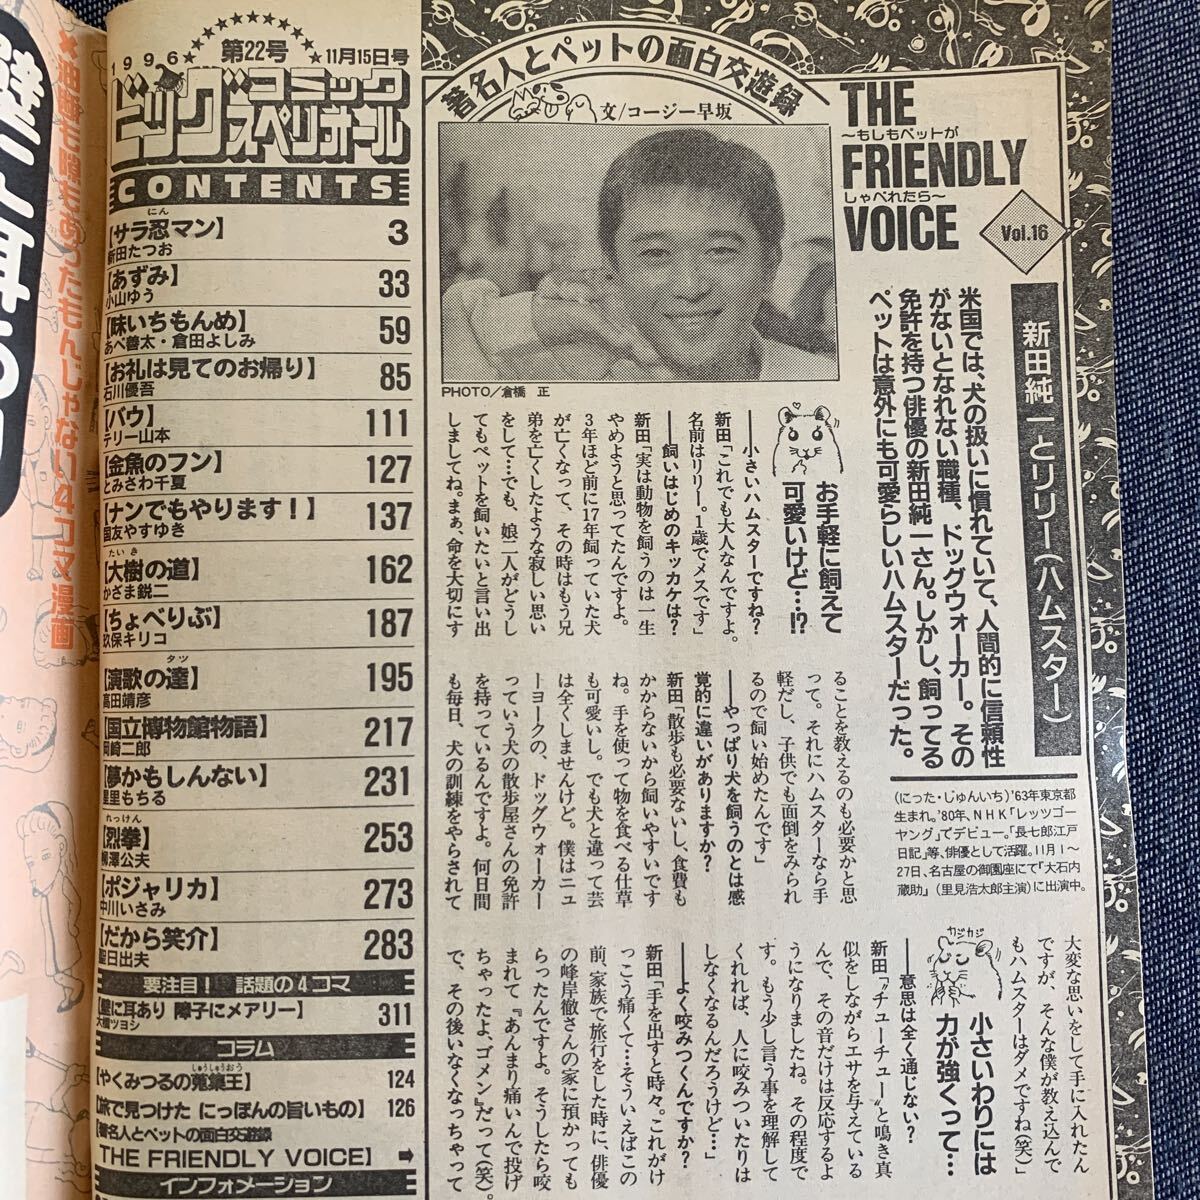 1996
第22号
11月15日号
ビッグコミック
スペリオール
CONTENTS
にん
【サラ忍マン】 3
新田たつお
【あずみ】 33
小山ゆう
【味いちもんめ】 59
あべ善太・倉田よしみ
【お礼は見てのお帰り】 85
石川優吾
【バウ】 111
テリー山本
【金魚のフン】 127
とみさわ千夏
【ナンでもやります！】 137
国友やすゆき
たいき
【大樹の道】 162
かざま鋭二
【ちょべりぶ】 187
玖保キリコ
タツ
【演歌の達】 195
高田靖彦
【国立博物館物語】 217
岡崎二郎
【夢かもしんない】 231
星里もちる
れっけん
【烈拳】 253
柳澤公夫
【ポジャリカ】 273
中川いさみ
【だから笑介】 283
聖日出夫
要注目！ 話題の4コマ
【壁に耳あり 障子にメアリー】 311
大橋ツヨシ
コラム
しゅうしゅうおう
【やくみつるの蒐集王】 124
【旅で見つけた にっぽんの旨いもの】 126
【著名人とペットの面白交遊録
THE FRIENDLY VOICE】 ➡
インフォメーション
著名人とペットの面白交遊録
文/コージー早坂
THE
〜もしもペットが
FRIENDLY
しゃべれたら〜
VOICE
Vol.16
PHOTO／倉橋 正
新田純一とリリー（ハムスター）
米国では、犬の扱いに慣れていて、人間的に信頼性
がないとなれない職種、ドッグウォーカー。その
免許を持つ俳優の新田純一さん。しかし、飼ってる
ペットは意外にも可愛らしいハムスターだった。
（にった・じゅんいち）'63年東京都
生まれ。'80年、NHK「レッツゴー
ヤング」でデビュー。「長七郎江戸
日記」等、俳優として活躍。11月1〜
27日、名古屋の御園座にて「大石内
蔵助」（里見浩太郎主演）に出演中。
お手軽に飼えて
可愛いけど…!?
──小さいハムスターですね？
新田「これでも大人なんですよ。
名前はリリー。1歳でメスです」
──飼いはじめのキッカケは？
新田「実は動物を飼うのは一生
やめようと思ってたんですよ。
3年ほど前に17年飼っていた犬
が亡くなって、その時はもう兄
弟を亡くしたような寂しい思い
をして…でも、娘二人がどうし
てもペットを飼いたいと言い出
しましてね。まぁ、命を大切にす
ることを教えるのも必要かと思
って。それにハムスターなら手
軽だし、子供でも面倒をみられ
るので飼い始めたんです」
──やっぱり犬を飼うのとは感
覚的に違いがありますか？
新田「散歩も必要ないし、食費も
かからないから飼いやすいです
ね。手を使って物を食べる仕草
も可愛いし。でも犬と違って芸
は全くしませんけど。僕はニュ
ーヨークの、ドッグウォーカー
っていう犬の散歩屋さんの免許
を持っているんですよ。何日間
も毎日、犬の訓練をやらされて
大変な思いをして手に入れたん
ですが、そんな僕が教え込んで
もハムスターはダメですね（笑）」
カジカジ
小さいわりには
力が強くって…
──意思は全く通じない？
新田「〝チューチュー〟と鳴き真
似をしながらエサを与えている
んで、その音だけは反応するよ
うになりましたね。その程度で
す。もう少し言う事を理解して
くれれば、人に咬みついたりは
しなくなるんだろうけど…」
──よく咬みつくんですか？
新田「手を出すと時々。これがけ
っこう痛くて…そういえばこの
前、家族で旅行をした時に、俳優
の峰岸徹さんの家に預かっても
らったんですよ。そうしたら咬
まれて『あんまり痛いんで投げ
ちゃったよ、ゴメン』だって（笑）。
で、その後いなくなっちゃって
×油断も隙もあったもんじゃない4コマ漫画